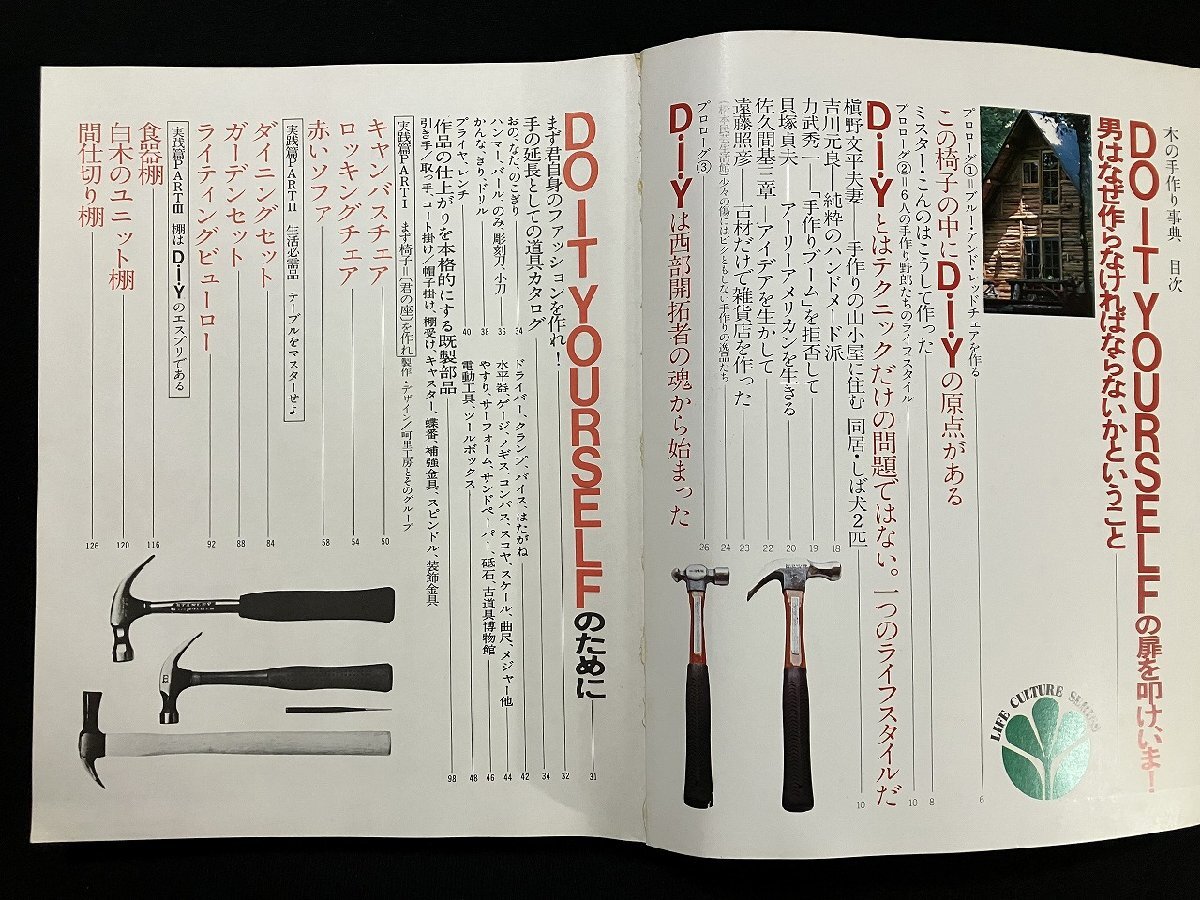 木の手作り事典 目次
DO IT YOURSELFの扉を叩け、いま!
男はなぜ作らなければならないかということ
プロローグ①=ブルー・アンド・レッドチェアを作る 6
この椅子の中にD・i・Yの原点がある
ミスター・こんのはこうして作った 8
プロローグ②=6人の手作り野郎たちのライフスタイル 10
D・i・Yとはテクニックだけの問題ではない。一つのライフスタイルだ 10
槇野文平夫妻 手作りの山小屋に住む 同居・しば犬2匹
吉川元良 純粋のハンドメード派 18
力武秀一 「手作りブーム」を拒否して 19
貝塚貞夫 アーリーアメリカンを生きる 20
佐久間基三章 アイデアを生かして 22
遠藤照彦 古材だけで雑貨店を作った 23
少々の傷にはビクともしない手作りの逸品たち 24
プロローグ③ 26
D・i・Yは西部開拓者の魂から始まった
LIFE CULTURE SERIES
DO IT YOURSELFのために 31
まず君自身のファッションを作れ! 32
手の延長としての道具カタログ 34
おの、なた、のこぎり 34
ハンマー、バール、のみ、彫刻刀、小刀 35
かんな、きり、ドリル 38
プライヤ、レンチ 40
ドライバー、クランプ、バイス、はたがね 42
水平器、ゲージ、ノギス、コンパス、スコヤ、スケール、曲尺、メジャー他 44
やすり、サーフォーム、サンドペーパー、砥石、古道具博物館 46
電動工具、ツールボックス 48
作品の仕上がりを本格的にする既製部品 98
引き手/取っ手、コート掛け/帽子掛け、棚受け、キャスター、蝶番、補強金具、スピンドル、装飾金具
実践篇PART I まず椅子=〔君の座〕を作れ 製作・デザイン/阿里工房とそのグループ
キャンバスチェア 50
ロッキングチェア 54
赤いソファ 58
実践篇PART II 生活必需品 テーブルをマスターせよ
ダイニングセット 84
ガーデンセット 88
ライティングビューロー 92
実践篇PART III 棚はD・i・Yのエスプリである
食器棚 116
白木のユニット棚 120
間仕切り棚 126
STANLEY